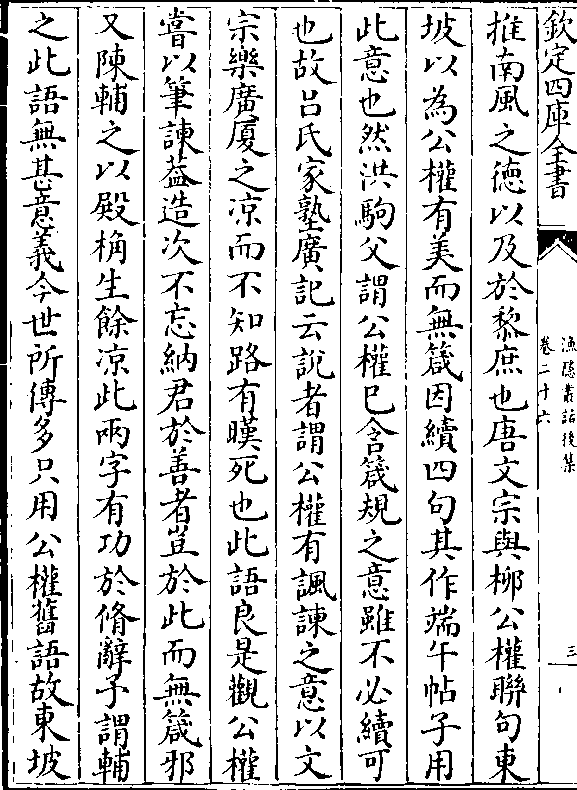 欽定四庫全書
漁隱叢話後集
卷二十六
三
推南風之徳以及於黎庶也唐文宗與栁公權聯句東
坡以為公權有美而無箴因續四句其作端午帖子用
此意也然洪駒父謂公權已含箴規之意雖不必續可
也故吕氏家塾廣記云說者謂公權有諷諫之意以文
宗樂廣厦之凉而不知路有暵死也此語良是觀公權
嘗以筆諫葢造次不忘納君於善者豈於此而無箴邪
又陳輔之以殿桷生餘凉此兩字有功於脩辭予謂輔
之此語無甚意義今世所傳多只用公權舊語故東坡